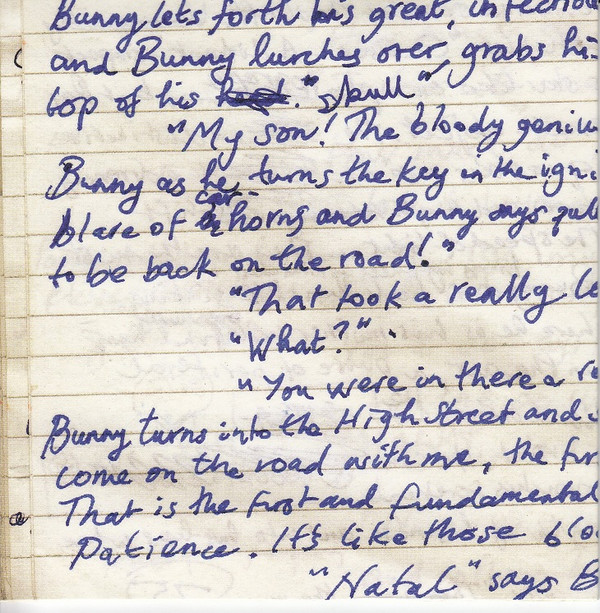 Bunny lets forth his great, infectiou
and Bunny lurches over, grabs hi
top of his skull.
"My son! The bloody geniu
Bunny as he turns the key in the igni
blare of car-horns and Bunny says
to be back on the road!"
"That took a really lo
"What?"
"You were in there a re
Bunny turns into the High Street and
come on the road with me, the fir
That is the first and fundamental
Patience. It's like those bloo
"Natal" says B